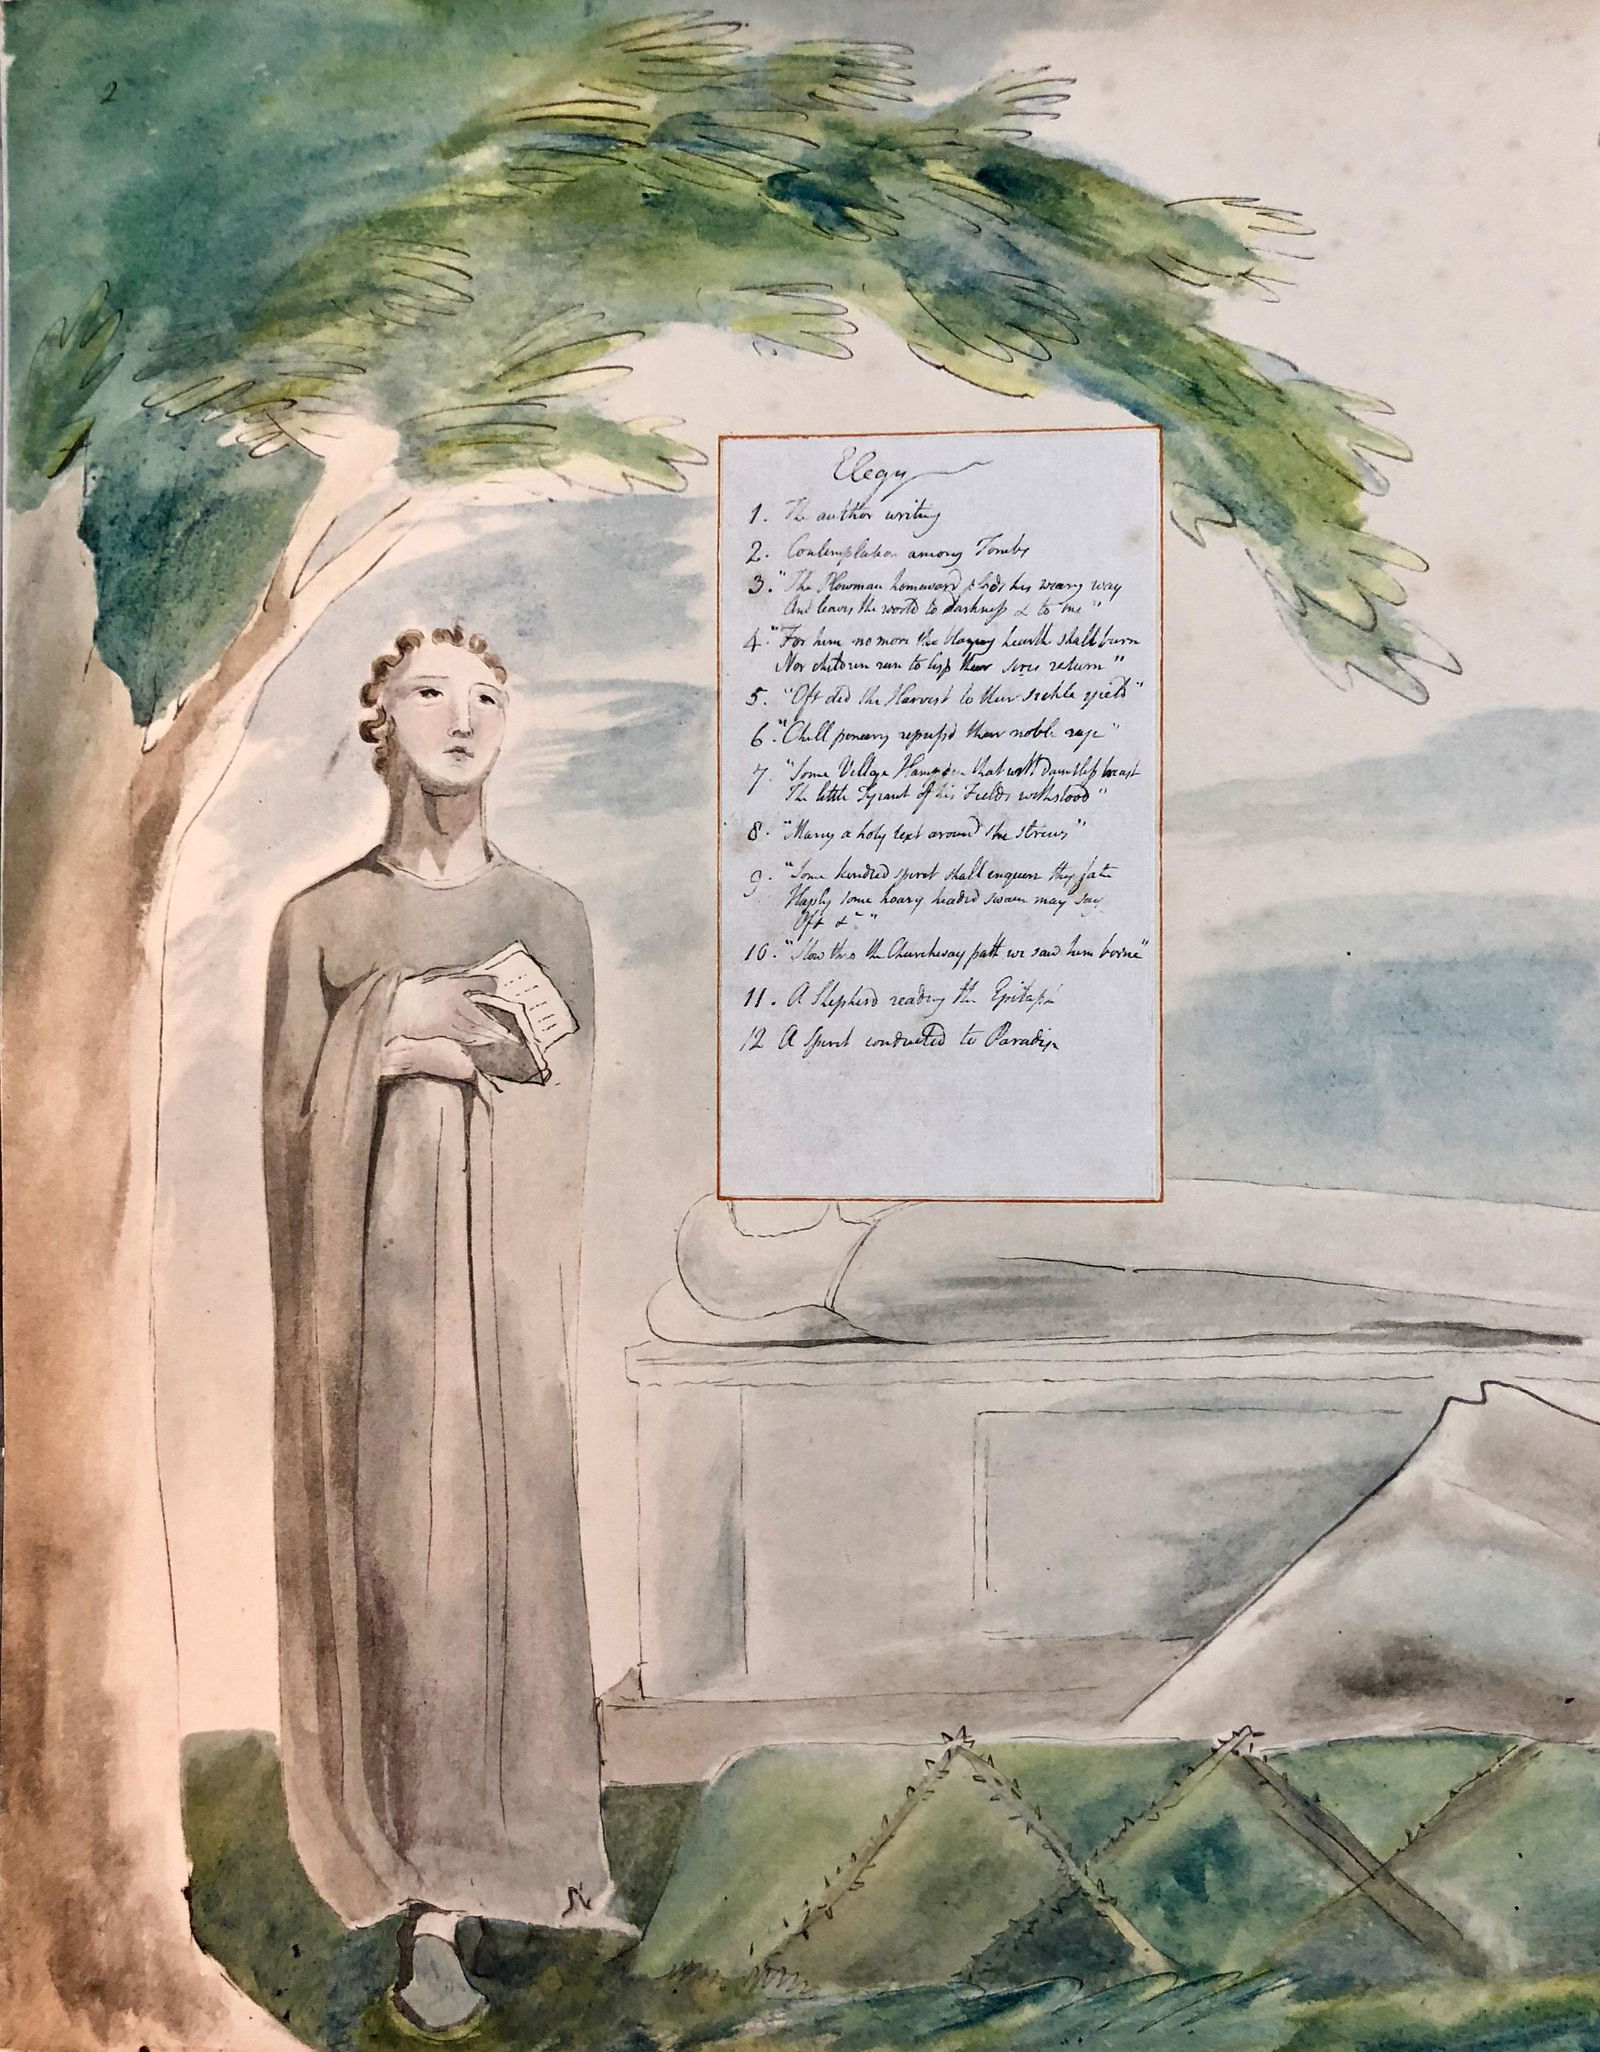 2
Elegy
1. The author writing
2. Contemplation among Tombs
3. "The Plowman homeward plods his weary way
And leaves the world to darkness & to me"
4. "For him no more the blazing hearth shall burn
Nor children run to lisp their sires return"
5. "Oft did the Harvest to their sickle yield"
6. "Chill penury repress'd their noble rage"
7. "Some Village Hampden that with dauntless breast
The little Tyrant of his Fields withstood"
8. "Many a holy text around she strews"
9. "Some kindred spirit shall enquire thy fate
Haply some hoary headed swain may say
Oft &c"
10. "Slow thro the Churchway path we saw him borne"
11. A Shepherd reading the Epitaph
12 A Spirit conducted to Paradise